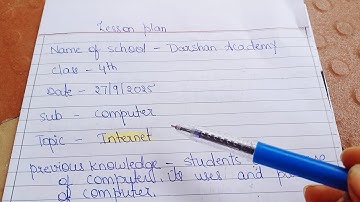 Lesson plan
Name of school - Darshan Academy
Class - 4th
Date - 27/9/2025
Sub - Computer
Topic - Internet
previous knowledge - students
of computer, its uses and
of computer.